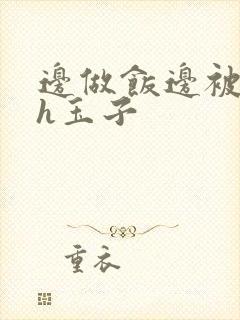 邊做飯邊被
h玉子
重衣